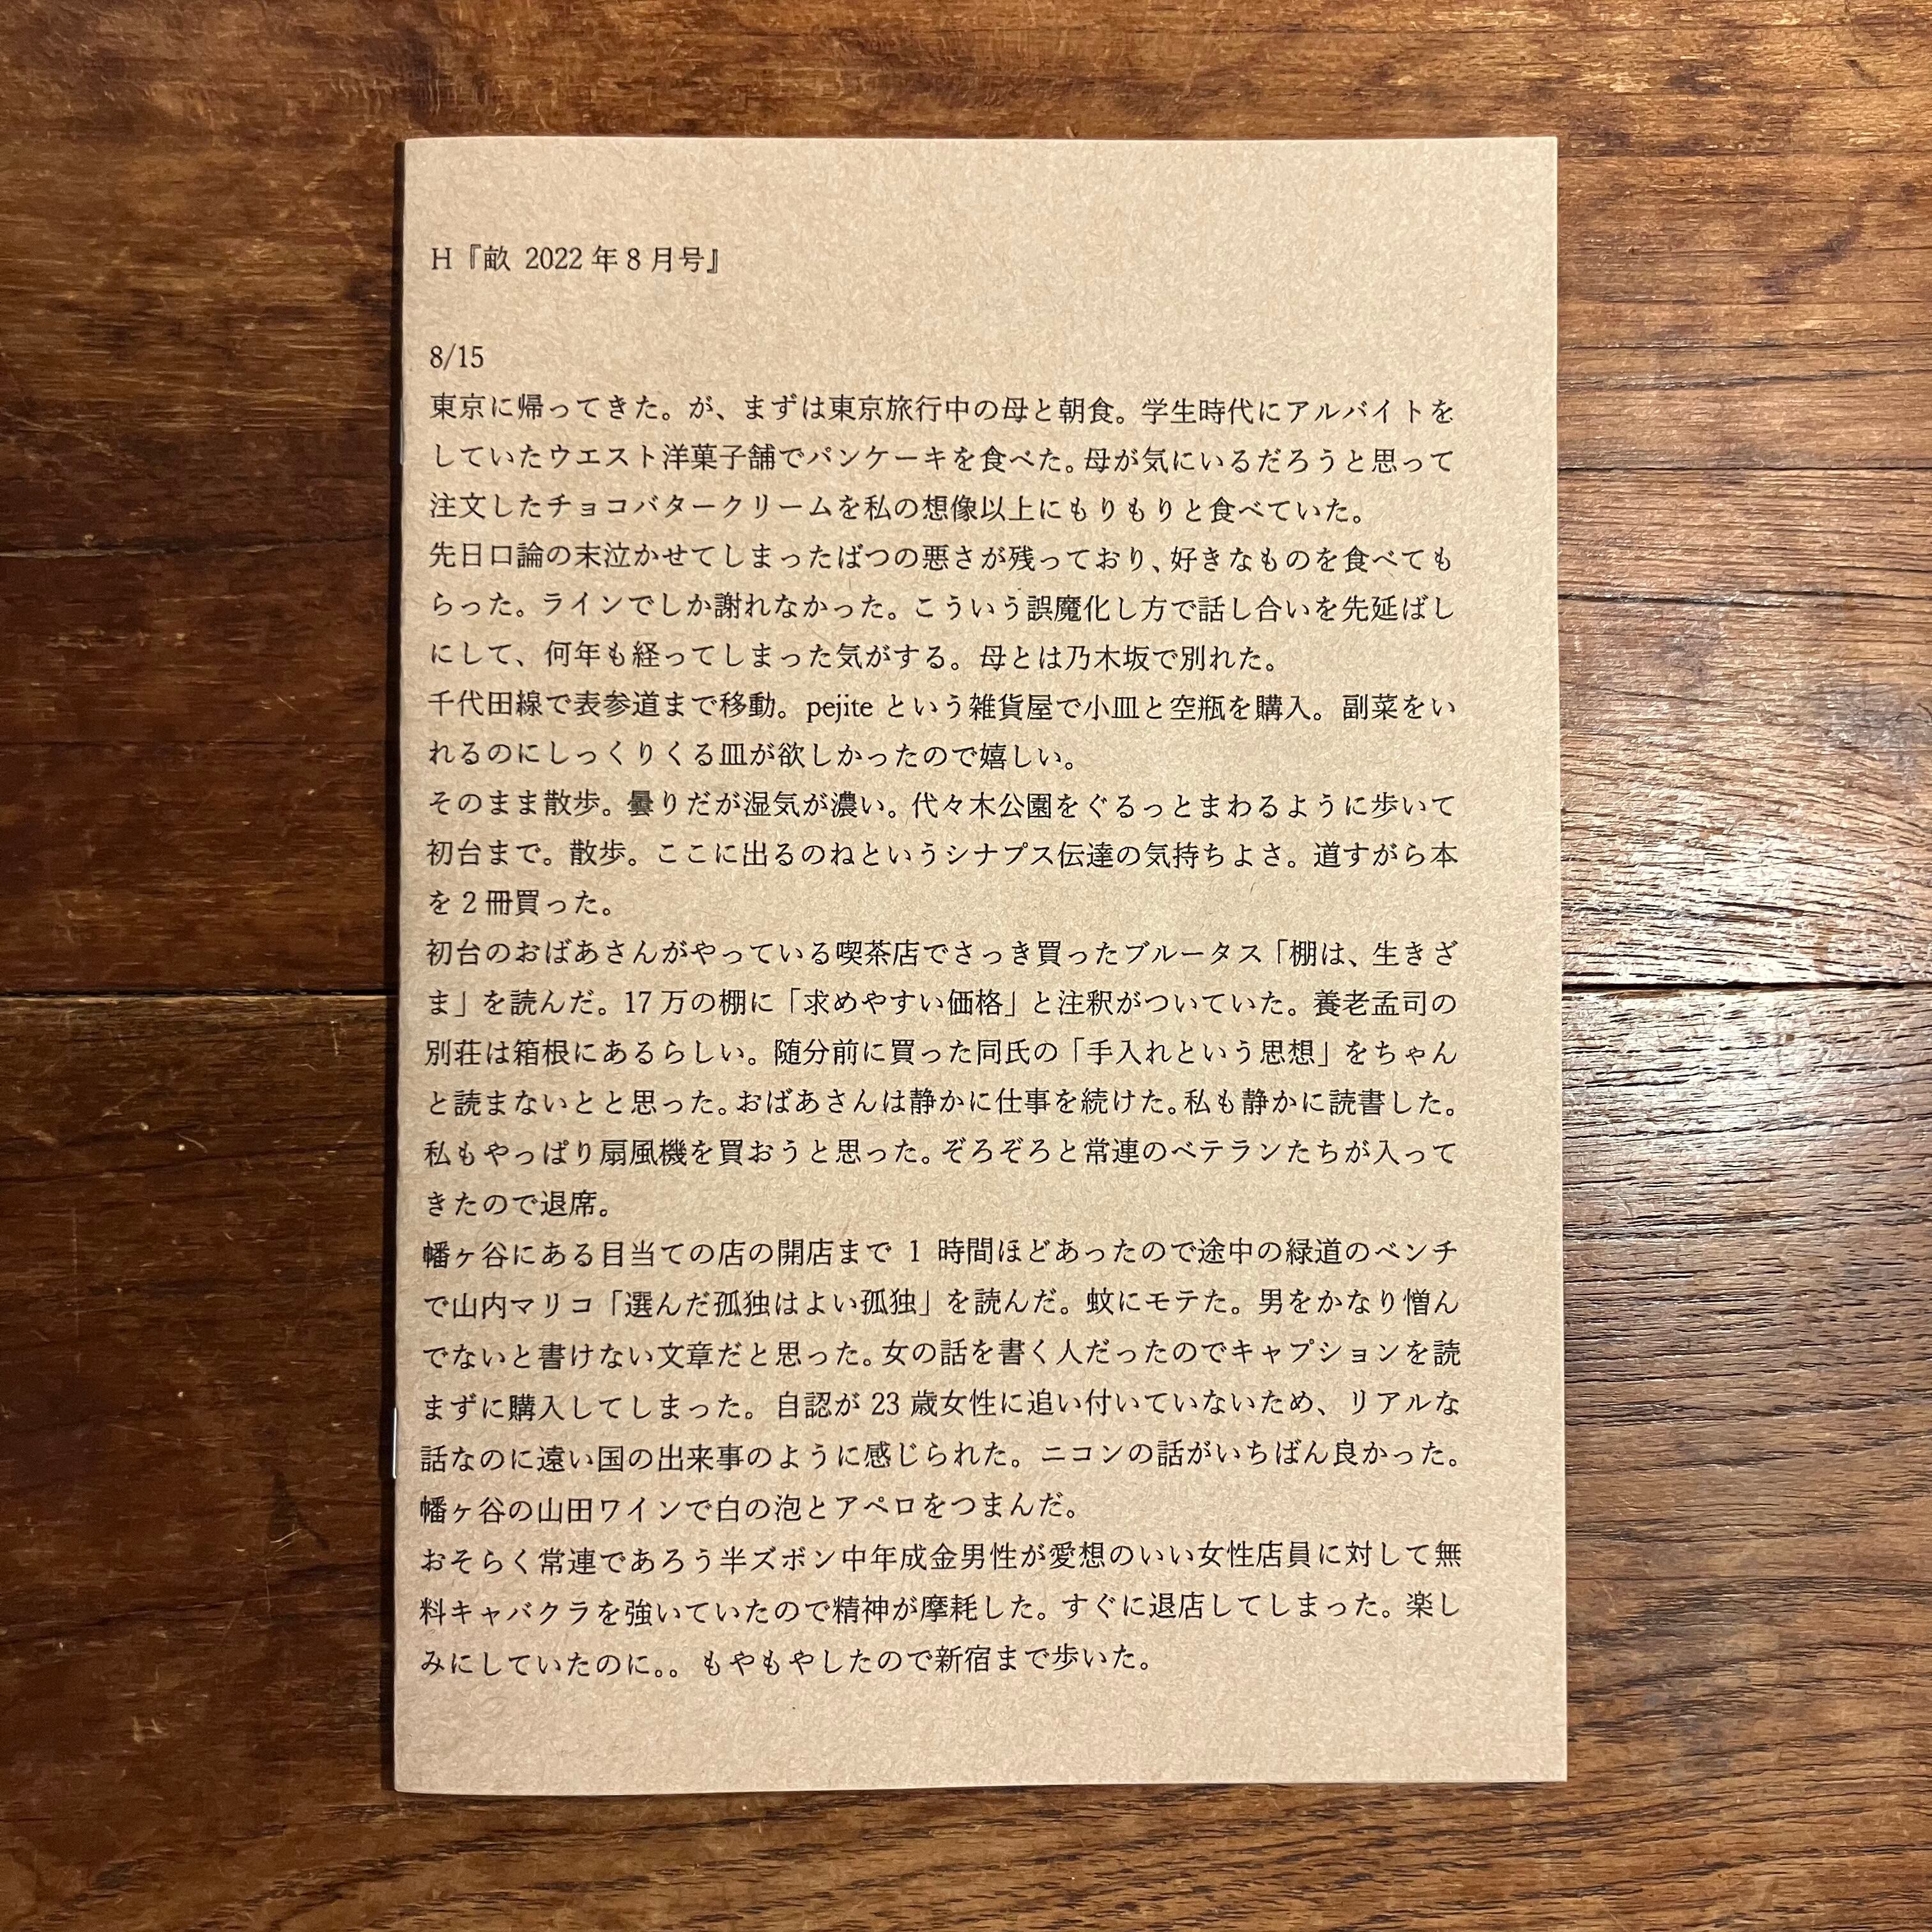 H『畝 2022年8月号』
8/15
東京に帰ってきた。が、まずは東京旅行中の母と朝食。学生時代にアルバイトを
していたウエスト洋菓子舗でパンケーキを食べた。母が気にいるだろうと思って
注文したチョコバタークリームを私の想像以上にもりもりと食べていた。
先日口論の末泣かせてしまったばつの悪さが残っており、好きなものを食べても
らった。ラインでしか謝れなかった。こういう誤魔化し方で話し合いを先延ばし
にして、何年も経ってしまった気がする。母とは乃木坂で別れた。
千代田線で表参道まで移動。pejite という雑貨屋で小皿と空瓶を購入。副菜をい
れるのにしっくりくる皿が欲しかったので嬉しい。
そのまま散歩。曇りだが湿気が濃い。代々木公園をぐるっとまわるように歩いて
初台まで。散歩。ここに出るのねというシナプス伝達の気持ちよさ。道すがら本
を2冊買った。
初台のおばあさんがやっている喫茶店でさっき買ったブルータス「棚は、生きざ
ま」を読んだ。17万の棚に「求めやすい価格」と注釈がついていた。養老孟司の
別荘は箱根にあるらしい。随分前に買った同氏の「手入れという思想」をちゃん
と読まないとと思った。おばあさんは静かに仕事を続けた。私も静かに読書した。
私もやっぱり扇風機を買おうと思った。ぞろぞろと常連のベテランたちが入って
きたので退席。
幡ヶ谷にある目当ての店の開店まで 1 時間ほどあったので途中の緑道のベンチ
で山内マリコ「選んだ孤独はよい孤独」を読んだ。蚊にモテた。男をかなり憎ん
でないと書けない文章だと思った。女の話を書く人だったのでキャプションを読
まずに購入してしまった。自認が 23 歳女性に追い付いていないため、リアルな
話なのに遠い国の出来事のように感じられた。ニコンの話がいちばん良かった。
幡ヶ谷の山田ワインで白の泡とアペロをつまんだ。
おそらく常連であろう半ズボン中年成金男性が愛想のいい女性店員に対して無
料キャバクラを強いていたので精神が摩耗した。すぐに退店してしまった。楽し
みにしていたのに。。もやもやしたので新宿まで歩いた。